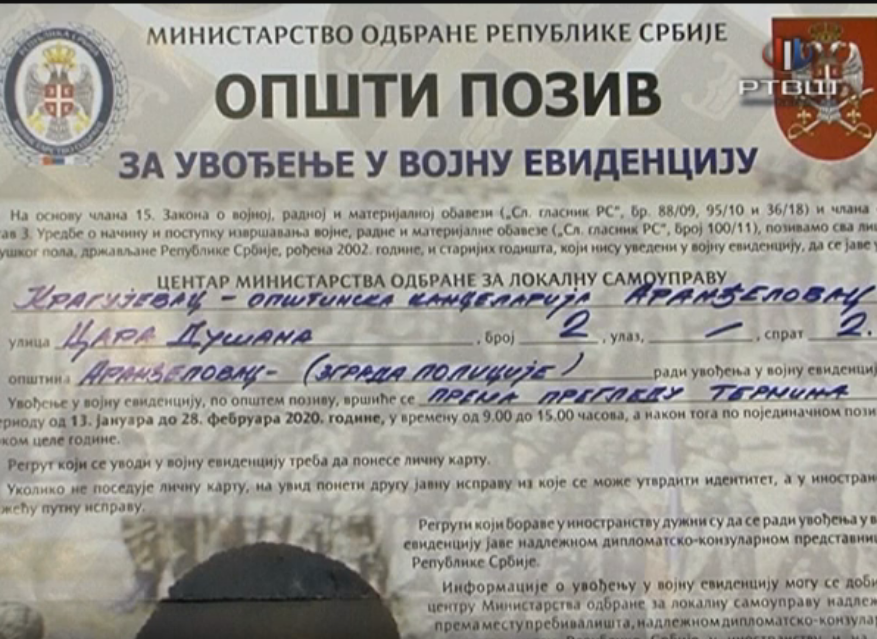 МИНИСТАРСТВО ОДБРАНЕ РЕПУБЛИКЕ СРБИЈЕ
РТВШ
ОПШТИ ПОЗИВ
ЗА УВОЂЕЊЕ У ВОЈНУ ЕВИДЕНЦИЈУ
На основу члана 15. Закона о војној, радној и материјалној обавези („Сл. гласник РС“, бр. 88/09, 95/10 и 36/18) и члана
3. Уредбе о начину и поступку извршавања војне, радне и материјалне обавезе („Сл. гласник РС“, број 100/11), позивамо сва
пола, држављане Републике Србије, рођена 2002. године, и старијих годишта, који нису уведени у војну евиденцију, да се јаве у
ЦЕНТАР МИНИСТАРСТВА ОДБРАНЕ ЗА ЛОКАЛНУ САМОУПРАВУ
КРАГУЈЕВАЦ - ОПШТИНСКА КАНЦЕЛАРИЈА АРАНЂЕЛОВАЦ
улица ЦАРА ДУШАНА, број 2, улаз, —, спрат 2.
општина АРАНЂЕЛОВАЦ - (ЗГРАДА ПОЛИЦИЈЕ) ради увођења у војну
Увођење у војну евиденцију, по општем позиву, вршиће се ПРЕМА ПРЕГЛЕДУ ТЕРМИНА
од 13. јануара до 28. фебруара 2020. године, у времену од 9.00 до 15.00 часова, а након тога по појединачном
целе године.
Регрут који се уводи у војну евиденцију треба да понесе личну карту.
Уколико не поседује личну карту, на увид понети другу јавну исправу из које се може утврдити идентитет, а у
путну исправу.
Регрути који бораве у иностранству дужни су да се ради увођења у
евиденцију јаве надлежном дипломатско-конзуларном
Републике Србије.
Информације о увођењу у војну евиденцију могу се
центру Министарства одбране за локалну самоуправу
према месту пребивалишта, надлежном дипломатско-